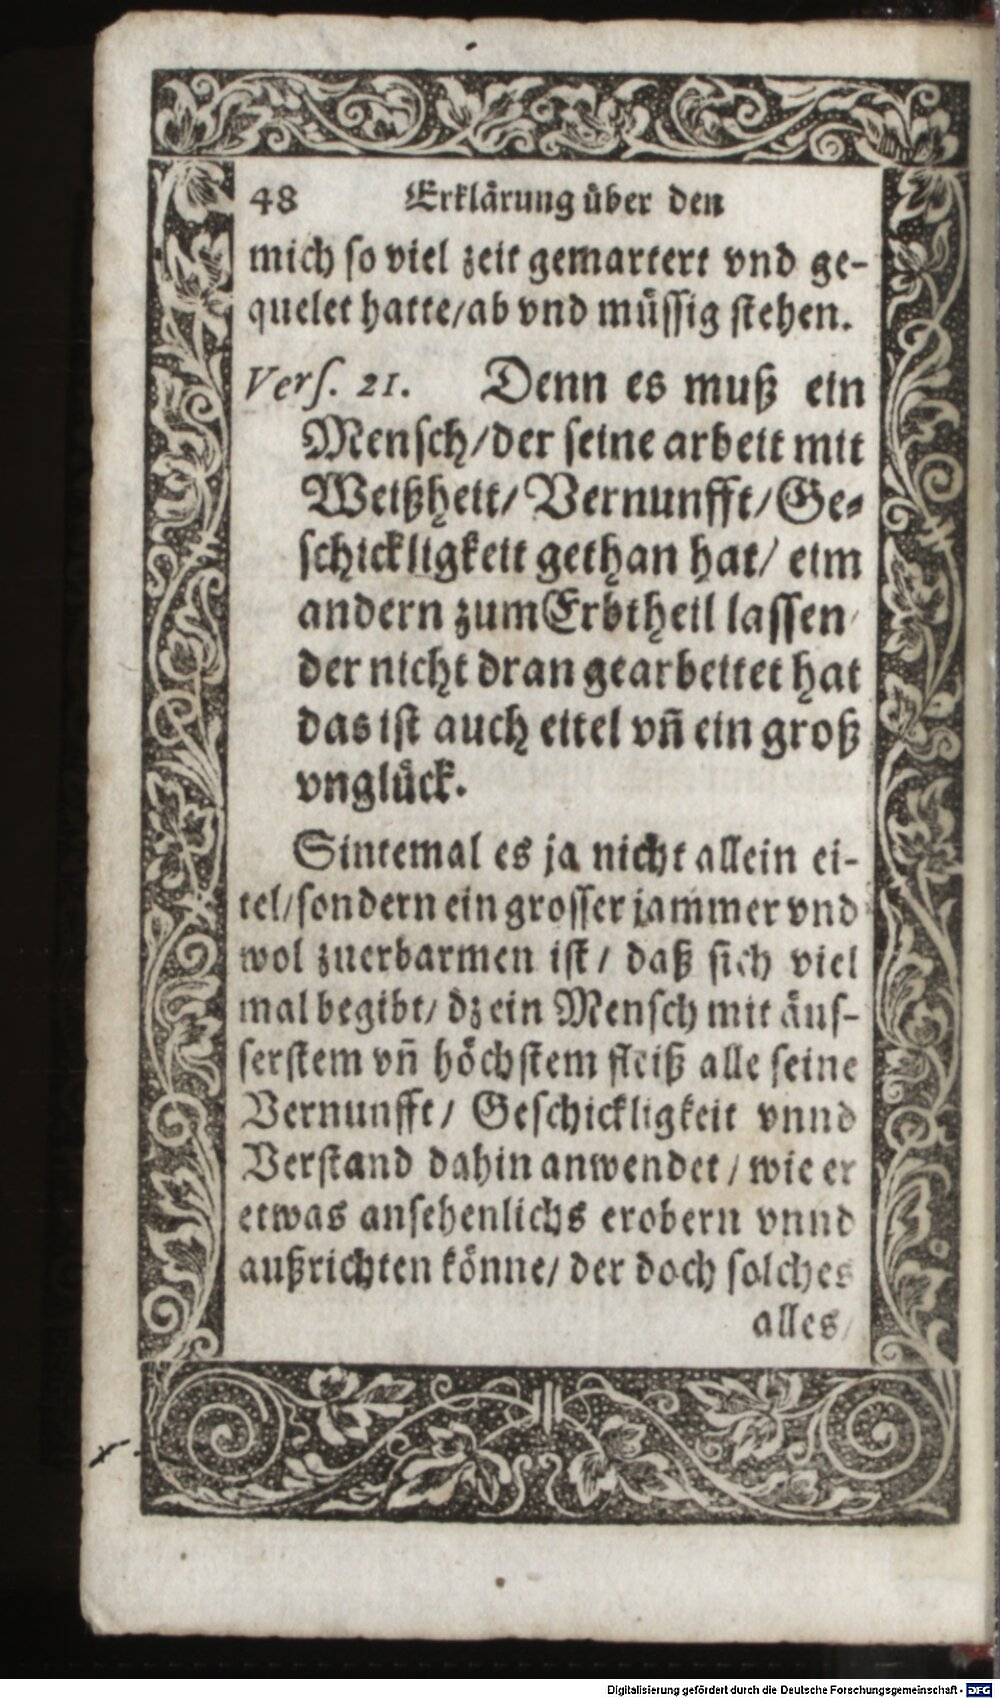 48 Erklärung über den
mich so viel zeit gemartert vnd ge-
quelet hatte/ab vnd müssig stehen.
Vers. 21. Denn es muß ein
Mensch/der seine arbeit mit
Weißheit/Vernunfft/Ge-
schickligkeit gethan hat/ eim
andern zum Erbtheil lassen/
der nicht dran gearbeitet hat
das ist auch eitel vñ ein groß
vnglück.
Sintemal es ja nicht allein ei-
tel/sondern ein grosser jammer vnd
wol zuerbarmen ist/ daß sich viel
mal begibt/ dz ein Mensch mit äus-
serstem vñ höchstem fleiß alle seine
Vernunfft/ Geschickligkeit vnnd
Verstand dahin anwendet/ wie er
etwas ansehenlichs erobern vnnd
außrichten könne/ der doch solches
alles/
Digitalisierung gefördert durch die Deutsche Forschungsgemeinschaft - DFG